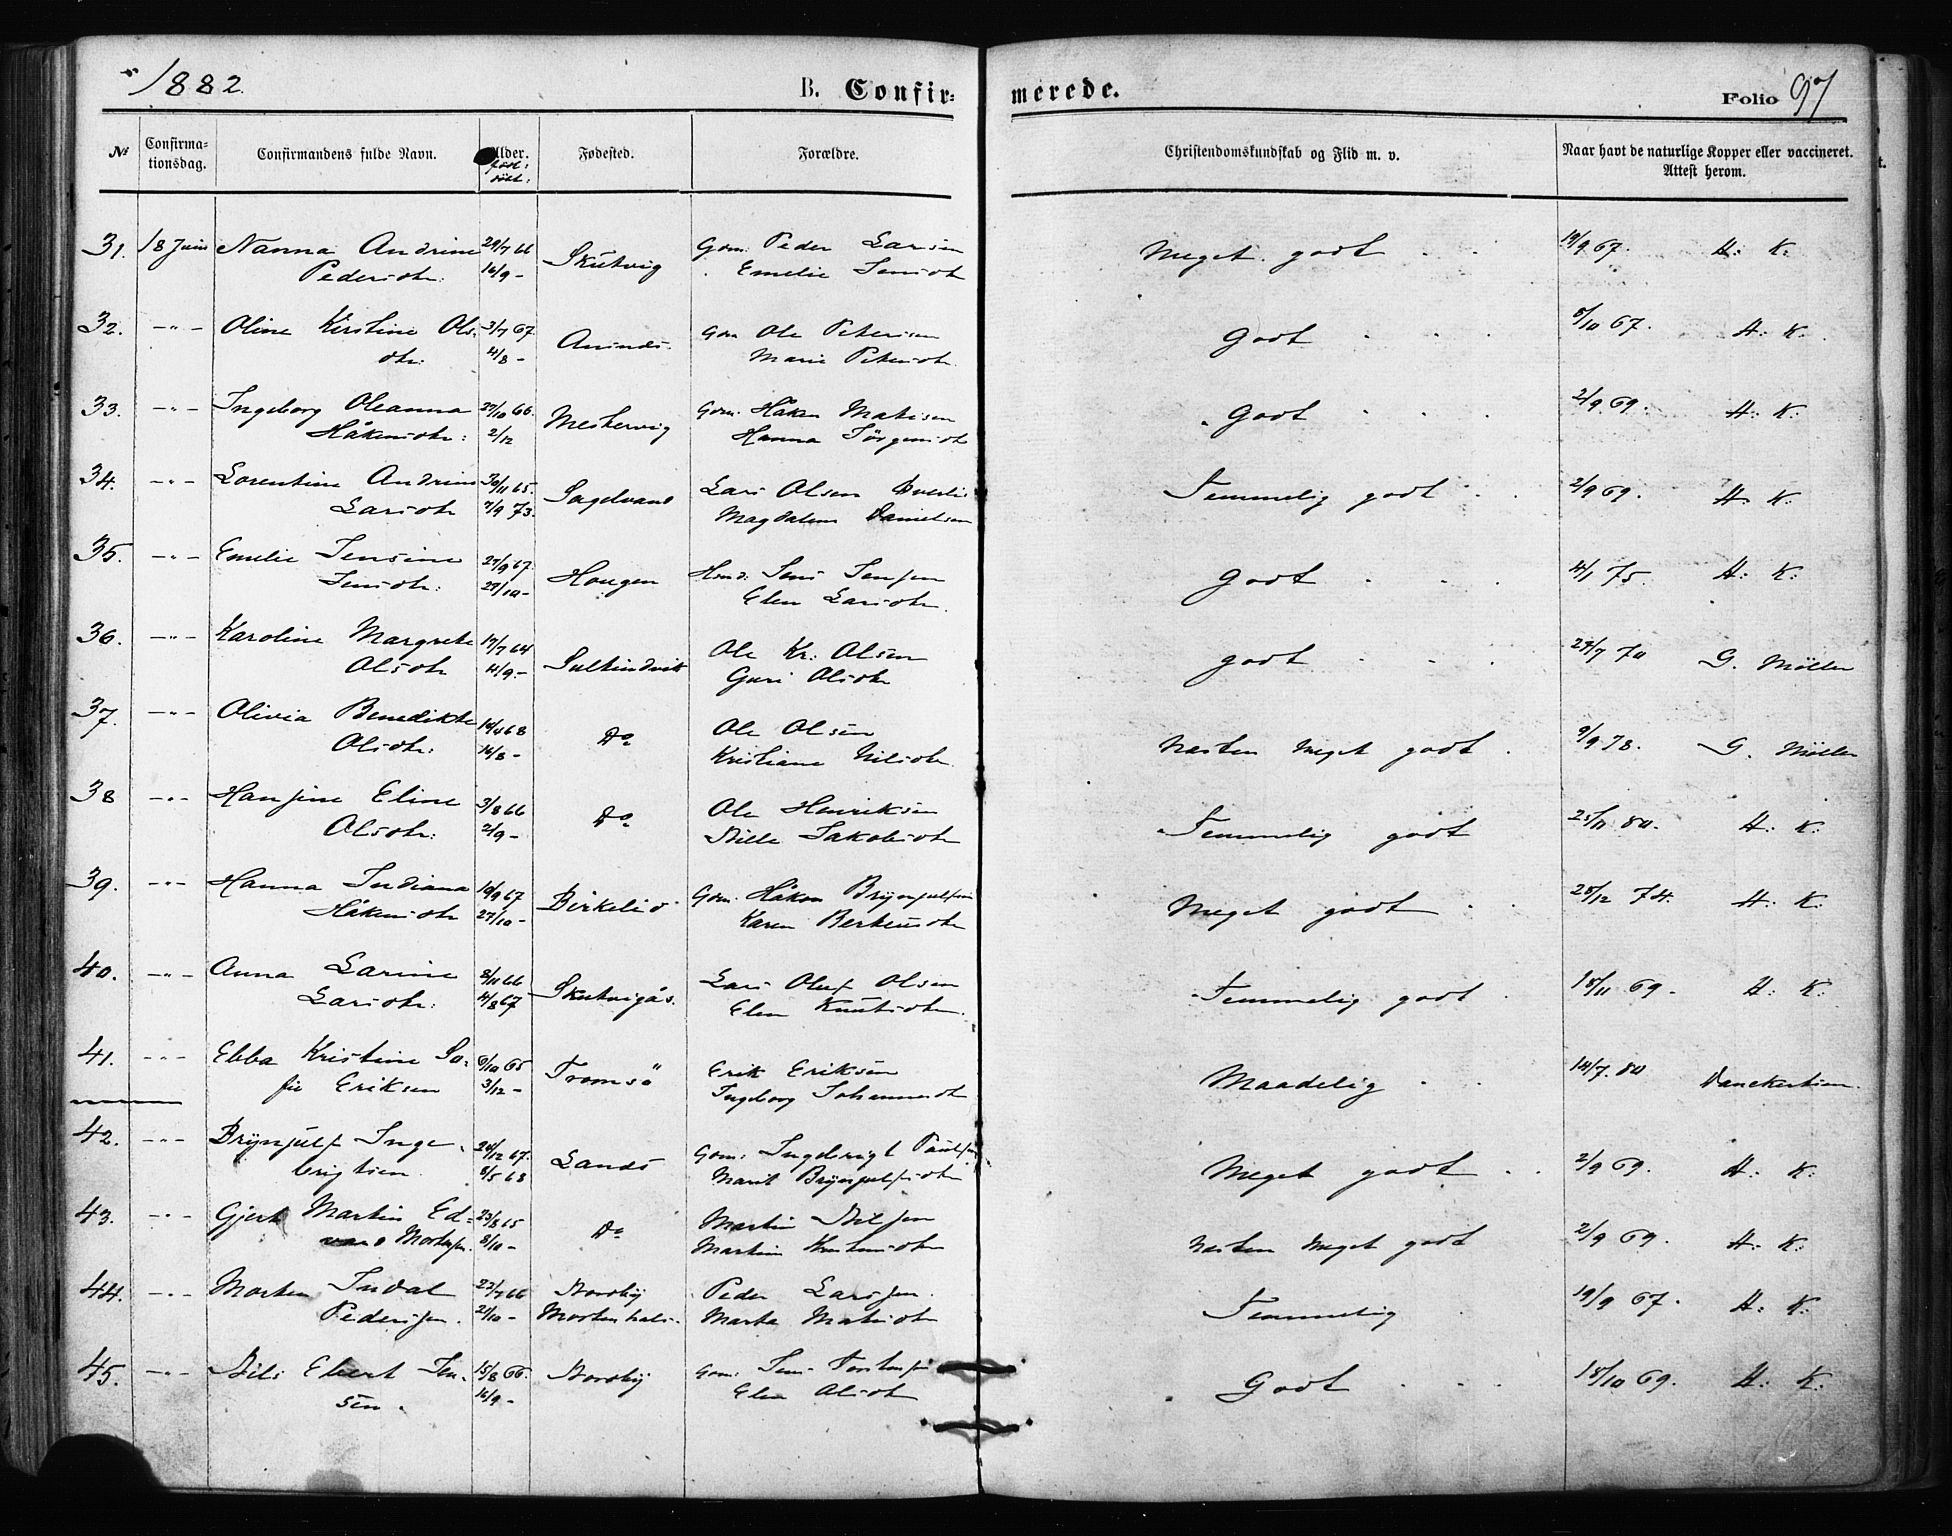 1882. B. Confirmerede. Folio 97
No Confirmationsdag. Confirmandens fulde Navn. Alder. født: døbt: Fødested. Forældre. Christendomskundskab og Flid m. v. Naar havt de naturlige Kopper eller vaccineret. Attest herom.
31. 18 Juni Nanna Andrine 29/7 66 Skutvig Gom. Peder Larsen Meget godt 19/9 67. H: K:
Pedersdtr. 16/9 - Emelie Jensdtr
32. -"- Oline Kirstine Ols- 3/7 67 Gom Ole Petersen Godt 8/10 67. H: K:
dtr: 4/8 - Marie Petersdtr
33. -"- Ingeborg Oleanna 27/10 66. Mestervig Gom. Håken Matisen Godt 2/9 69. H: K:
Håkensdtr: 2/12 Hanna Jörgensdtr
34. -"- Lorentine Andrine 30/11 65. Sagelvand Lars Olsen Temmelig godt 2/9 69. H: K:
Larsdtr 7/9 73. Magdalena Danielsen
35. -"- Emelie Jensine 27/9 67. Hougen Hmd: Jens Jensen Godt 4/1 75. H: K:
Jensdtr: 27/10 - Elen Larsdtr.
36. -"- Karoline Margrete 17/7 64 Sultindvik Ole Kr: Olsen godt 27/7 70 G. Möller
Olsdtr 4/9 - Guri Olsdtr
37. -"- Olivia Benedikte 14/4 68 Do Ole Olsen Næsten meget godt 9/9 78. G. Möller
Olsdtr: 16/8 - Kristiane Nilsdtr.
38 -"- Hansine Eline 3/8 66 Do Ole Henriksen Temmelig godt 25/11 80. H: K:
Olsdtr: 2/9 - Nille Jakobsdtr
39. -"- Hanna Indiana 19/9 67 Birkelid Gom. Håkon Brynjulfsen Meget godt 28/12 74. H: K:
Håkensdtr 27/10 - Karen Berteusdtr
40. -"- Anna Larine 8/11 66 Skutvigås. Lars Oluf Olsen Temmelig godt 18/11 69. H: K:
Larsdtr: 4/8 67 Elen Knutsdtr.
41. -"- Ebba Kristine So- 6/10 65 Tromsö Erik Eriksen Maadelig 14/7. 80 Danckertsen.
fie Eriksen 3/12 - Ingeborg Johannesdt
42. -"- Brynjulf Inge- 28/12 67. Lands Gom: Ingebrigt Paulsen Meget godt 2/9 69. H: K:
brigtsen. 8/5 68 Marit Brynjulfsdtr
43. -"- Gjert Martin Ed- 23/8 65 Do Martin Nilsen Næsten meget godt 2/9 69. H: K:
vard Mortensen. 8/10 - Martine
44. -"- Morten Indal 22/7 66 Nordby Peder Larsen. Temmelig 19/9 67. H: K:
Pedersen. 21/10 - Mortenhals. Marta Matisdtr
45. -"- Nils Ebert Jen- 15/8 66. Nordby Gom: Jens Torstensen Godt 18/10 69. H: K:
sen. 16/9 - Elen Olsdtr